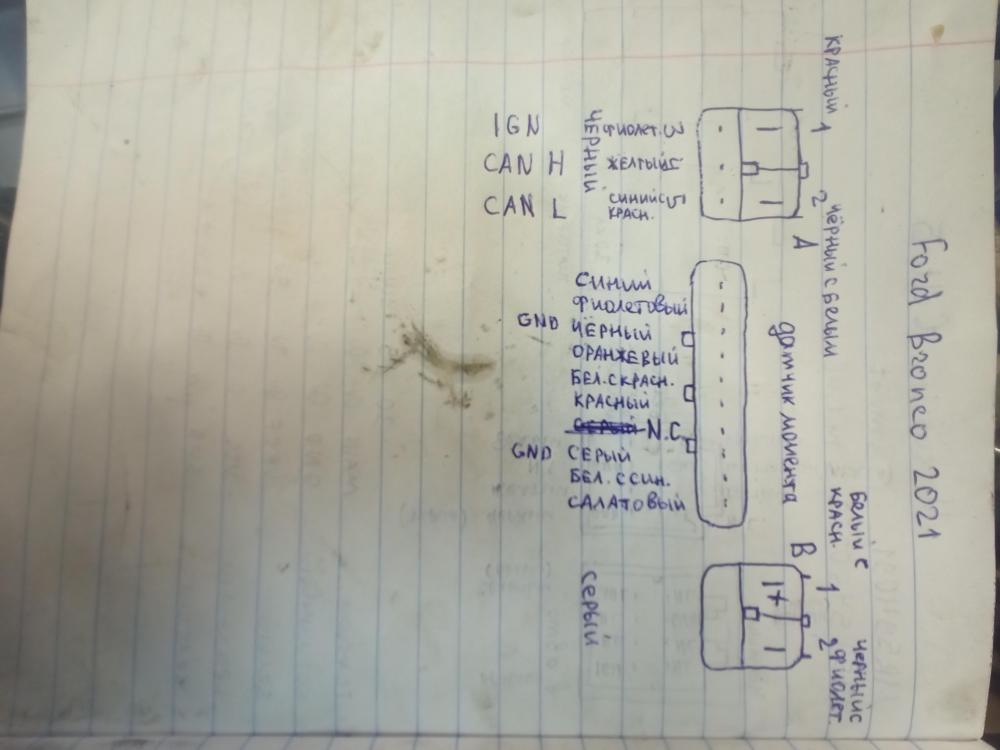 Ford Bronco 2021
КРАСНЫЙ 1
2 ЧЁРНЫЙ С БЕЛЫМ
A
IGN
CAN H
CAN L
ЧЁРНЫЙ
ФИОЛЕТ. 3
ЖЁЛТЫЙ
СИНИЙ С 5
КРАСН.
датчик момента
СИНИЙ
ФИОЛЕТОВЫЙ
GND ЧЁРНЫЙ
ОРАНЖЕВЫЙ
БЕЛ.С КРАСН.
КРАСНЫЙ
N.C.
GND СЕРЫЙ
БЕЛ. С СИН.
САЛАТОВЫЙ
B
БЕЛЫЙ С
КРАСН.
1
2
ЧЕРНЫЙ С
ФИОЛЕТ.
+
СЕРЫЙ